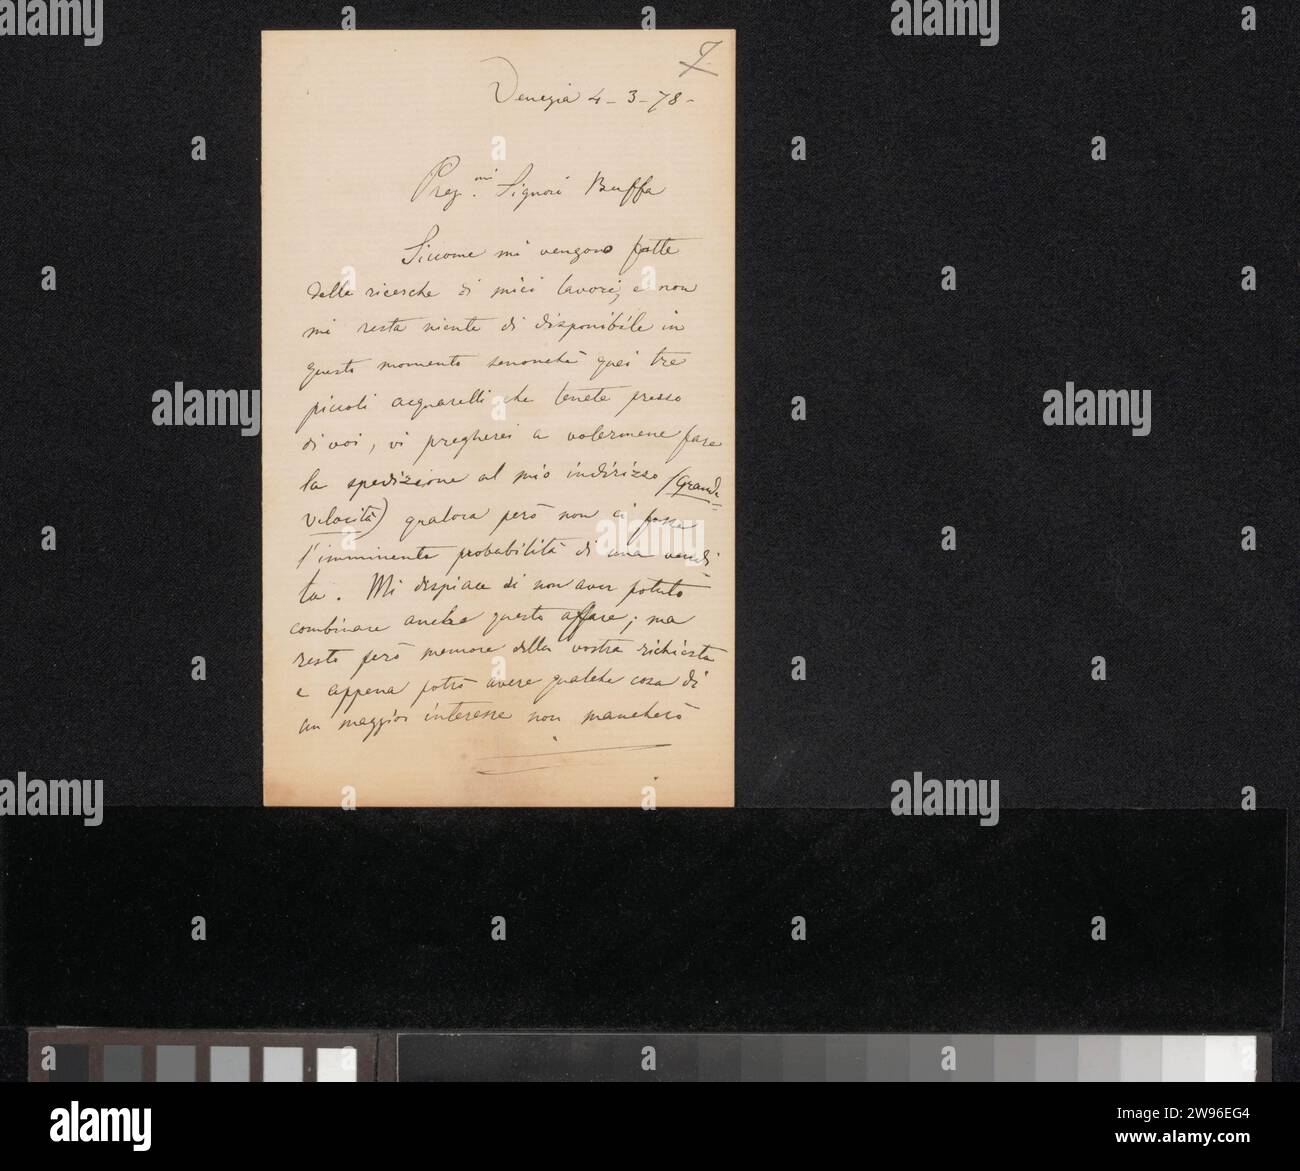 Venezia 4-3-78-
Preg.mi Signori Buffa
Siccome mi vengono fatte
delle ricerche di miei lavori, e non
mi resta niente di disponibile in
questo momento senonchè quei tre
piccoli acquarelli che tenete presso
di voi, vi pregherei a volermene fare
la spedizione al mio indirizzo (Grande
velocità) qualora però non ci fosse
l'imminente probabilità di una vendi
ta. Mi dispiace di non aver potuto
combinare anche questo affare; ma
resto però memore della vostra richiesta
e appena potrò avere qualche cosa di
un maggior interesse non mancherò
alamy
2W96EG4
Image ID: 2W96EG4
www.alamy.com